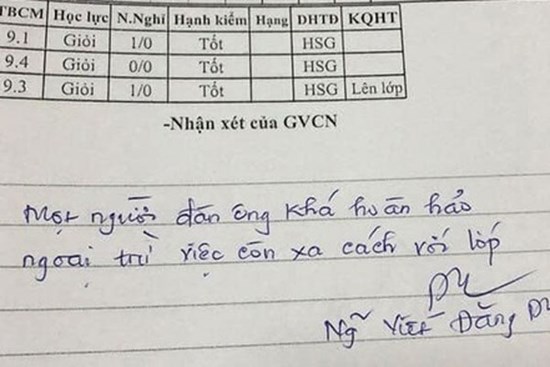 TBCM Học lực N.Nghỉ Hạnh kiểm Hạng DHTĐ KQHT
9.1 Giỏi 1/0 Tốt HSG
9.4 Giỏi 0/0 Tốt HSG
9.3 Giỏi 1/0 Tốt HSG Lên lớp
-Nhận xét của GVCN
Một người đàn ông khá hoàn hảo
ngoại trừ việc còn xa cách với lớp
Ng Viết Đăng